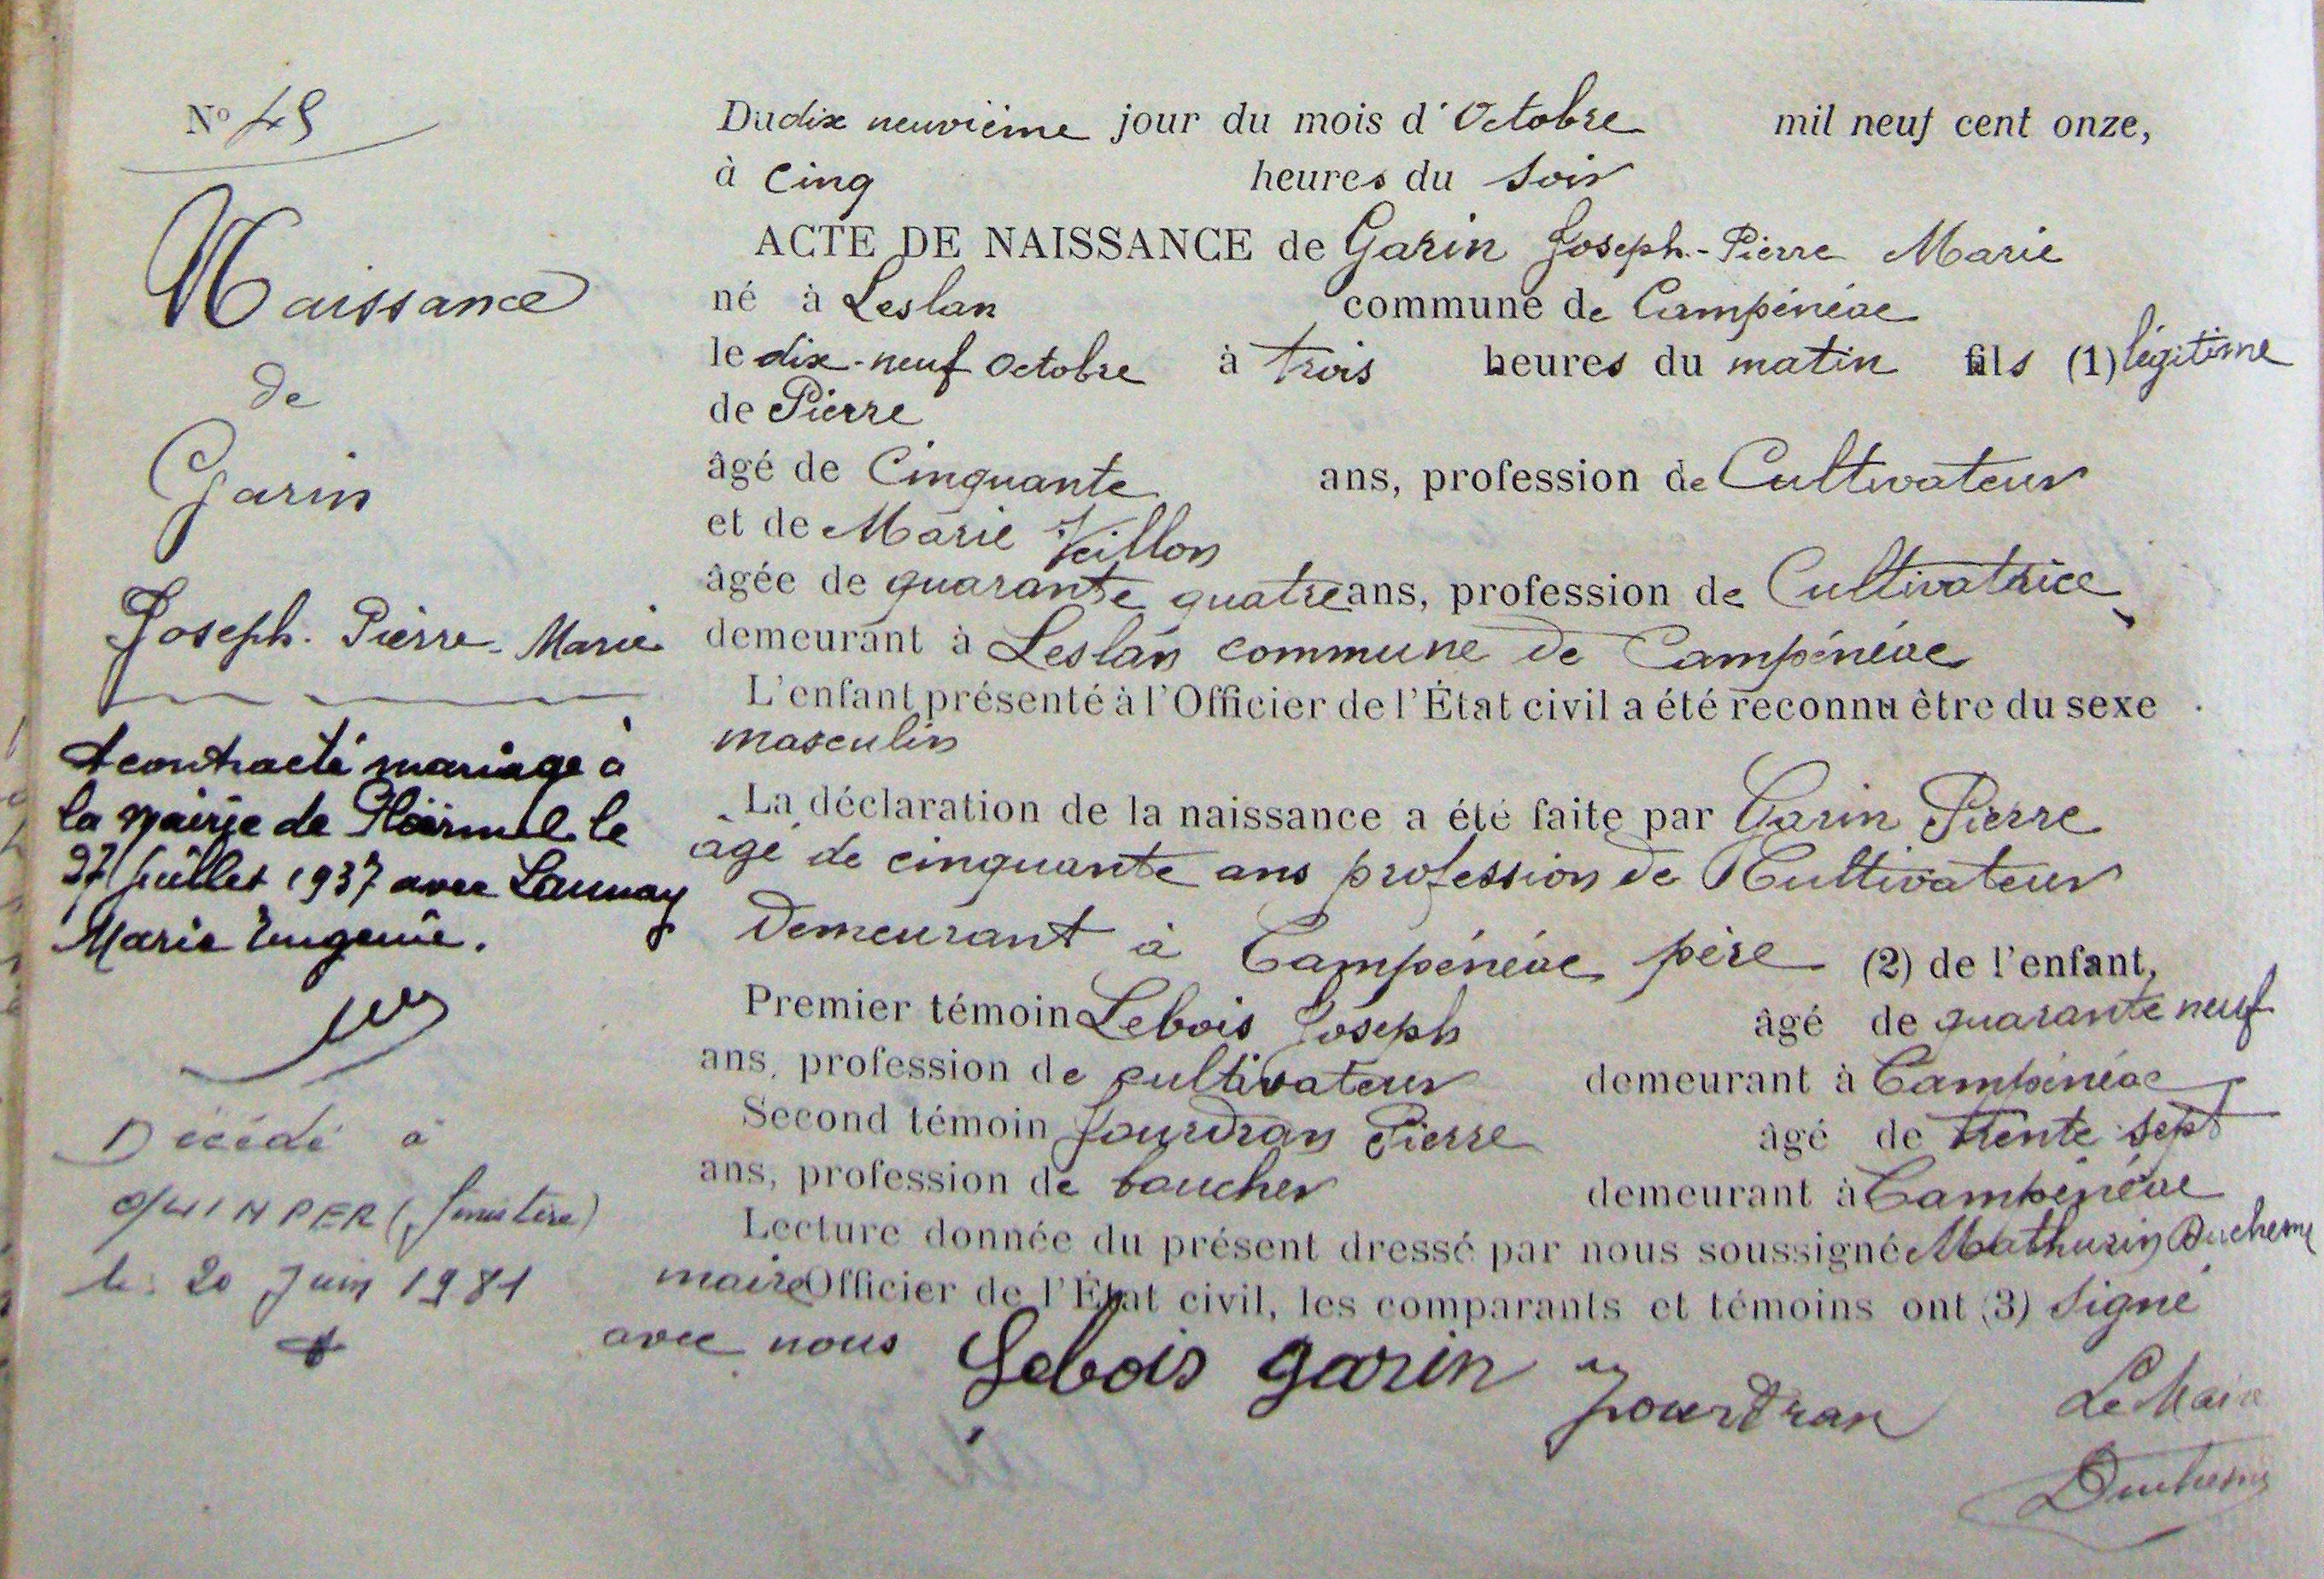 N° 49
Naissance
de
Garin
Joseph-Pierre-Marie
A contracté mariage à
la mairie de Ploërmel le
27 Juillet 1937 avec Launay
Marie Eugénie.
Décédé à
QUIMPER (finistère)
le 20 Juin 1981
Du dix neuvième jour du mois d'Octobre mil neuf cent onze,
à Cinq heures du soir
ACTE DE NAISSANCE de Garin Joseph-Pierre Marie
né à Leslan commune de Campénéac
le dix-neuf Octobre à trois heures du matin fils (1) légitime
de Pierre
âgé de Cinquante ans, profession de Cultivateur
et de Marie Veillon
âgée de quarante quatre ans, profession de Cultivatrice
demeurant à Leslan commune de Campénéac
L'enfant présenté à l'Officier de l'État civil a été reconnu être du sexe
masculin
La déclaration de la naissance a été faite par Garin Pierre
âgé de cinquante ans profession de Cultivateur
Demeurant à Campénéac père (2) de l'enfant,
Premier témoin Lebois Joseph âgé de quarante neuf
ans, profession de cultivateur demeurant à Campénéac
Second témoin Jourdran Pierre âgé de trente-sept
ans, profession de boucher demeurant à Campénéac
Lecture donnée du présent dressé par nous soussigné Mathurin Duchesne
maire Officier de l'État civil, les comparants et témoins ont (3) signé
avec nous Lebois garin Jourdran Le Maire
Duchesne